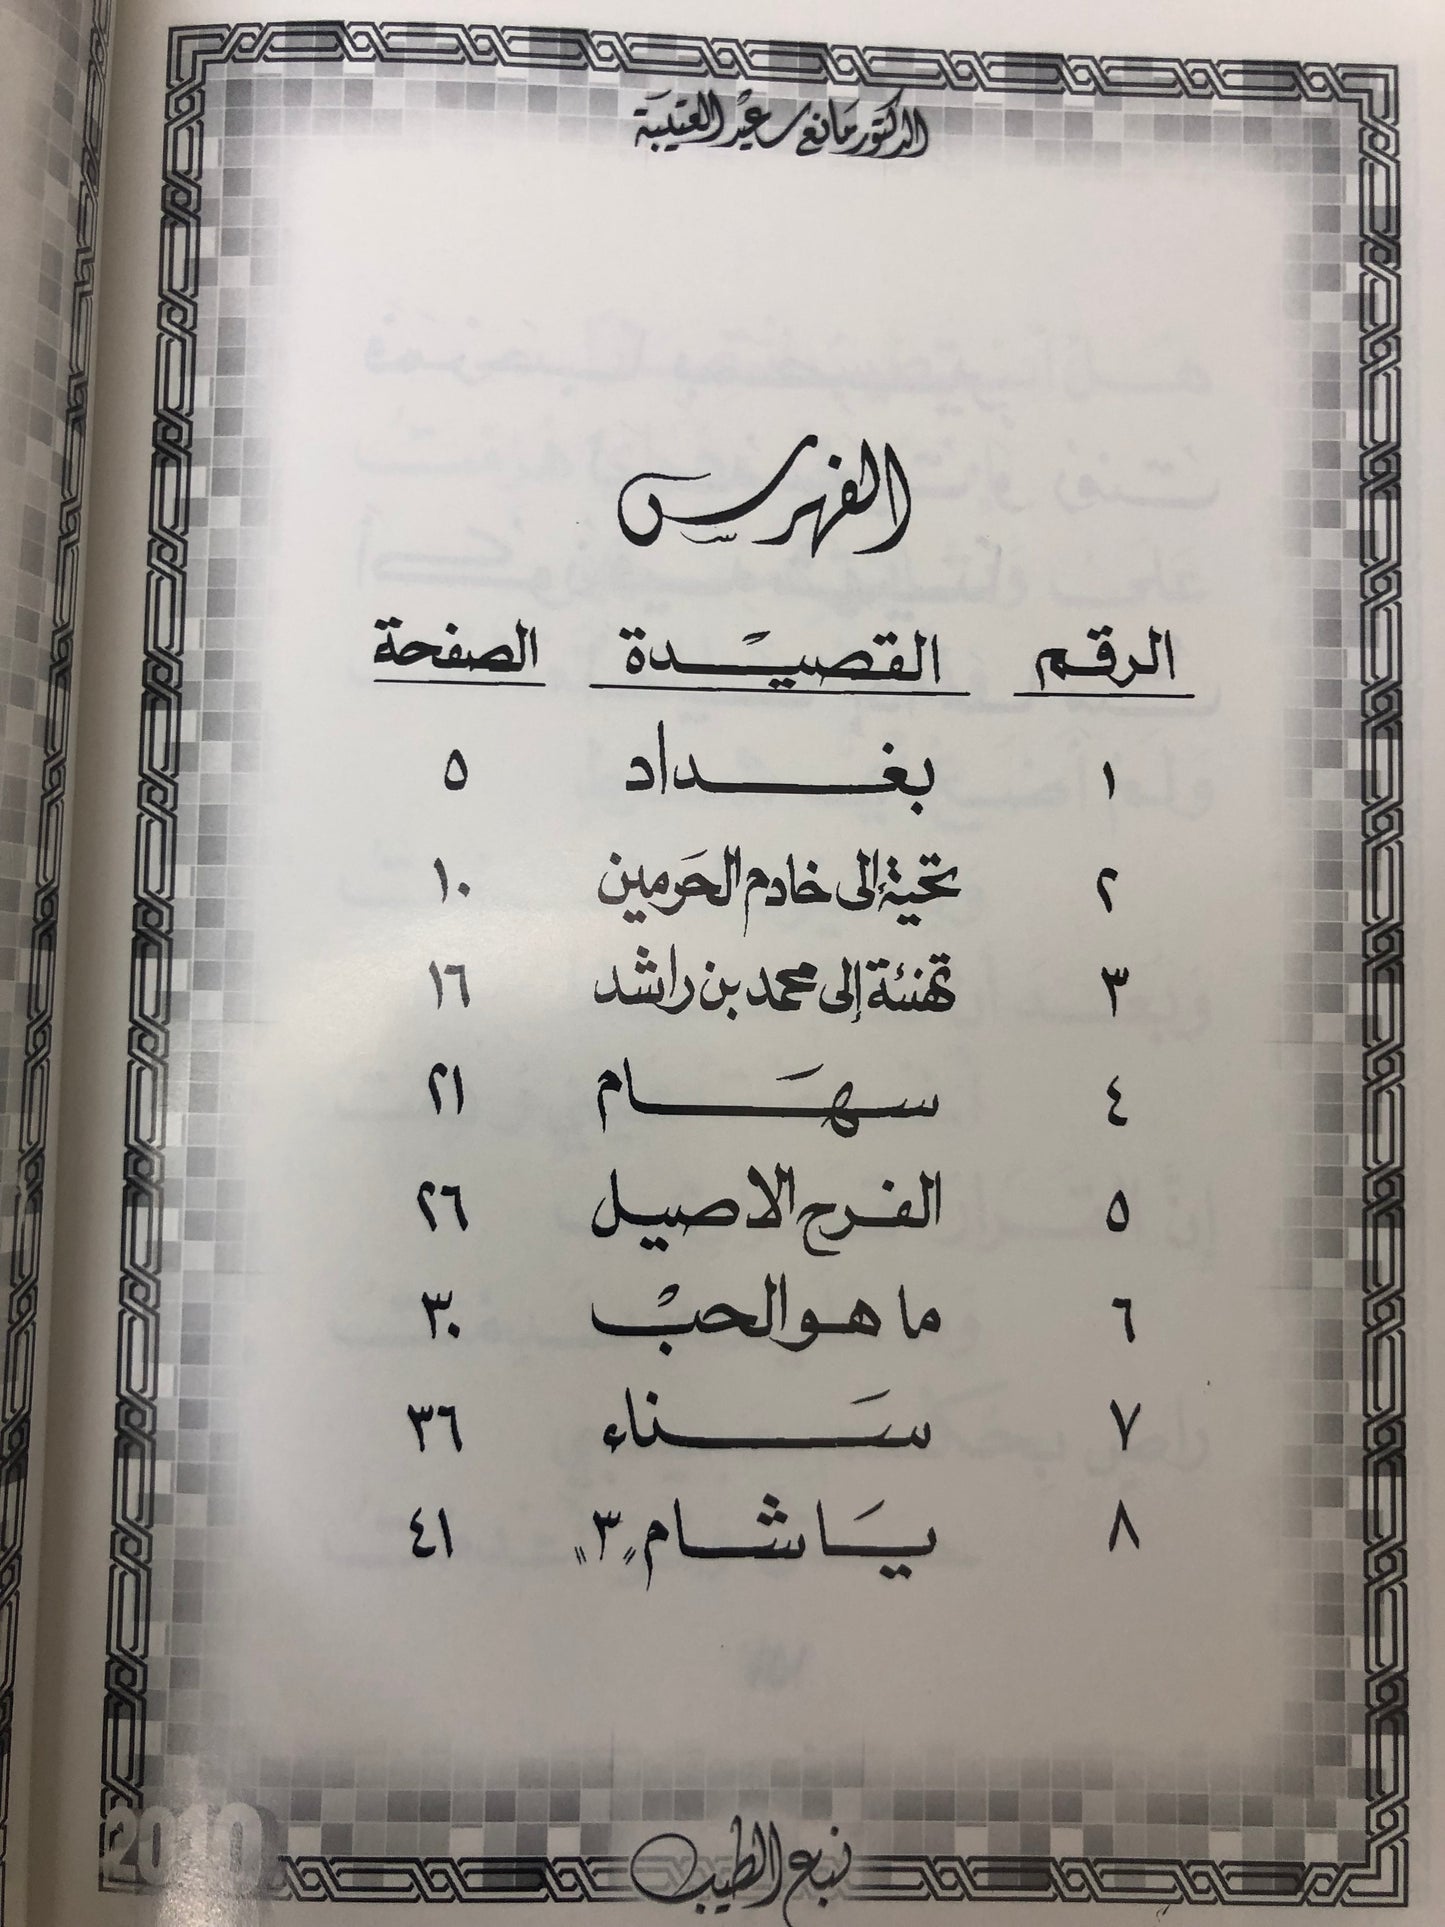 الدكتور مانع سعيد العتيبة
الفهرس
الرقم القصيدة الصفحة
١ بغداد ٥
٢ تحية إلى خادم الحرمين ١٠
٣ تهنئة إلى محمد بن راشد ١٦
٤ سهام ٢١
٥ الفرح الاصيل ٢٦
٦ ما هو الحب ٣٠
٧ سناء ٣٦
٨ يا شام "٣" ٤١
نبع الطيب
2010